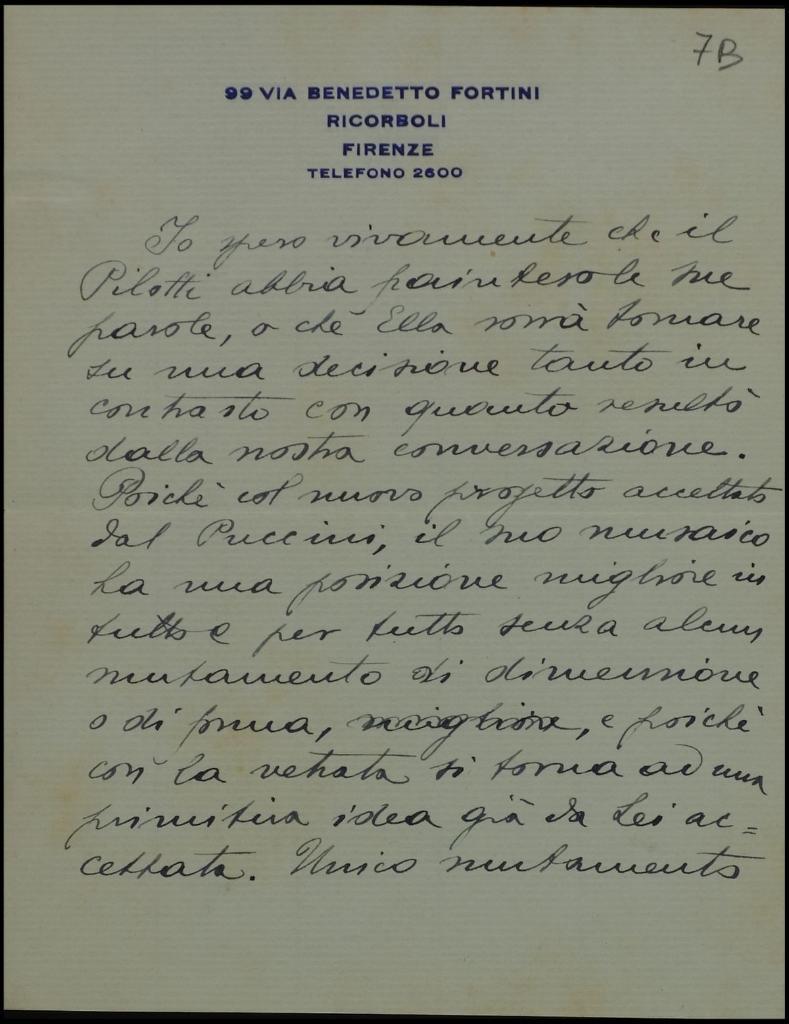 7B
99 VIA BENEDETTO FORTINI
RICORBOLI
FIRENZE
TELEFONO 2600
Io spero vivamente che il
Pilotti abbia fainteso le sue
parole, o che Ella vorrà tornare
su una decisione tanto in
contrasto con quanto resultò
dalla nostra conversazione.
Poichè col nuovo progetto accettato
dal Puccini, il suo musaico
ha una posizione migliore in
tutto e per tutto senza alcun
mutamento di dimensione
o di forma, migliore, e poichè
con la vetrata si torna ad una
primitiva idea già da Lei ac=
cettata. Unico mutamento